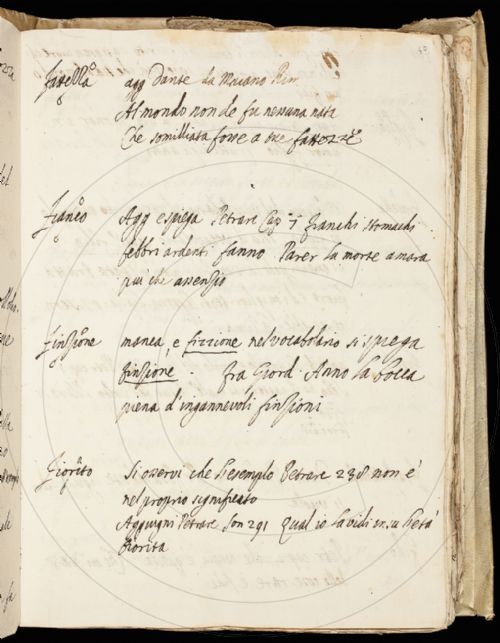 agg Dante da Maiano Rim
Al mondo non de fu nessuna nata
Che somilliata fosse a tre fattezze
Fianco Agg e spiega Petrarc Cap franchi stomachi
febbri ardenti fanno Parer la morte amara
piu che assensio
Finsione manca, e fizzione nel vocabolario si spiega
finsione. fra Giord. Anno la bocca
piena d'ingannevoli finsioni
Fiorito Si osservi che l'esempio Petrarc 238 non e'
nel proprio significato
Aggiugni Petrarc Son 291 Qual io la vidi in su l'eta'
fiorita